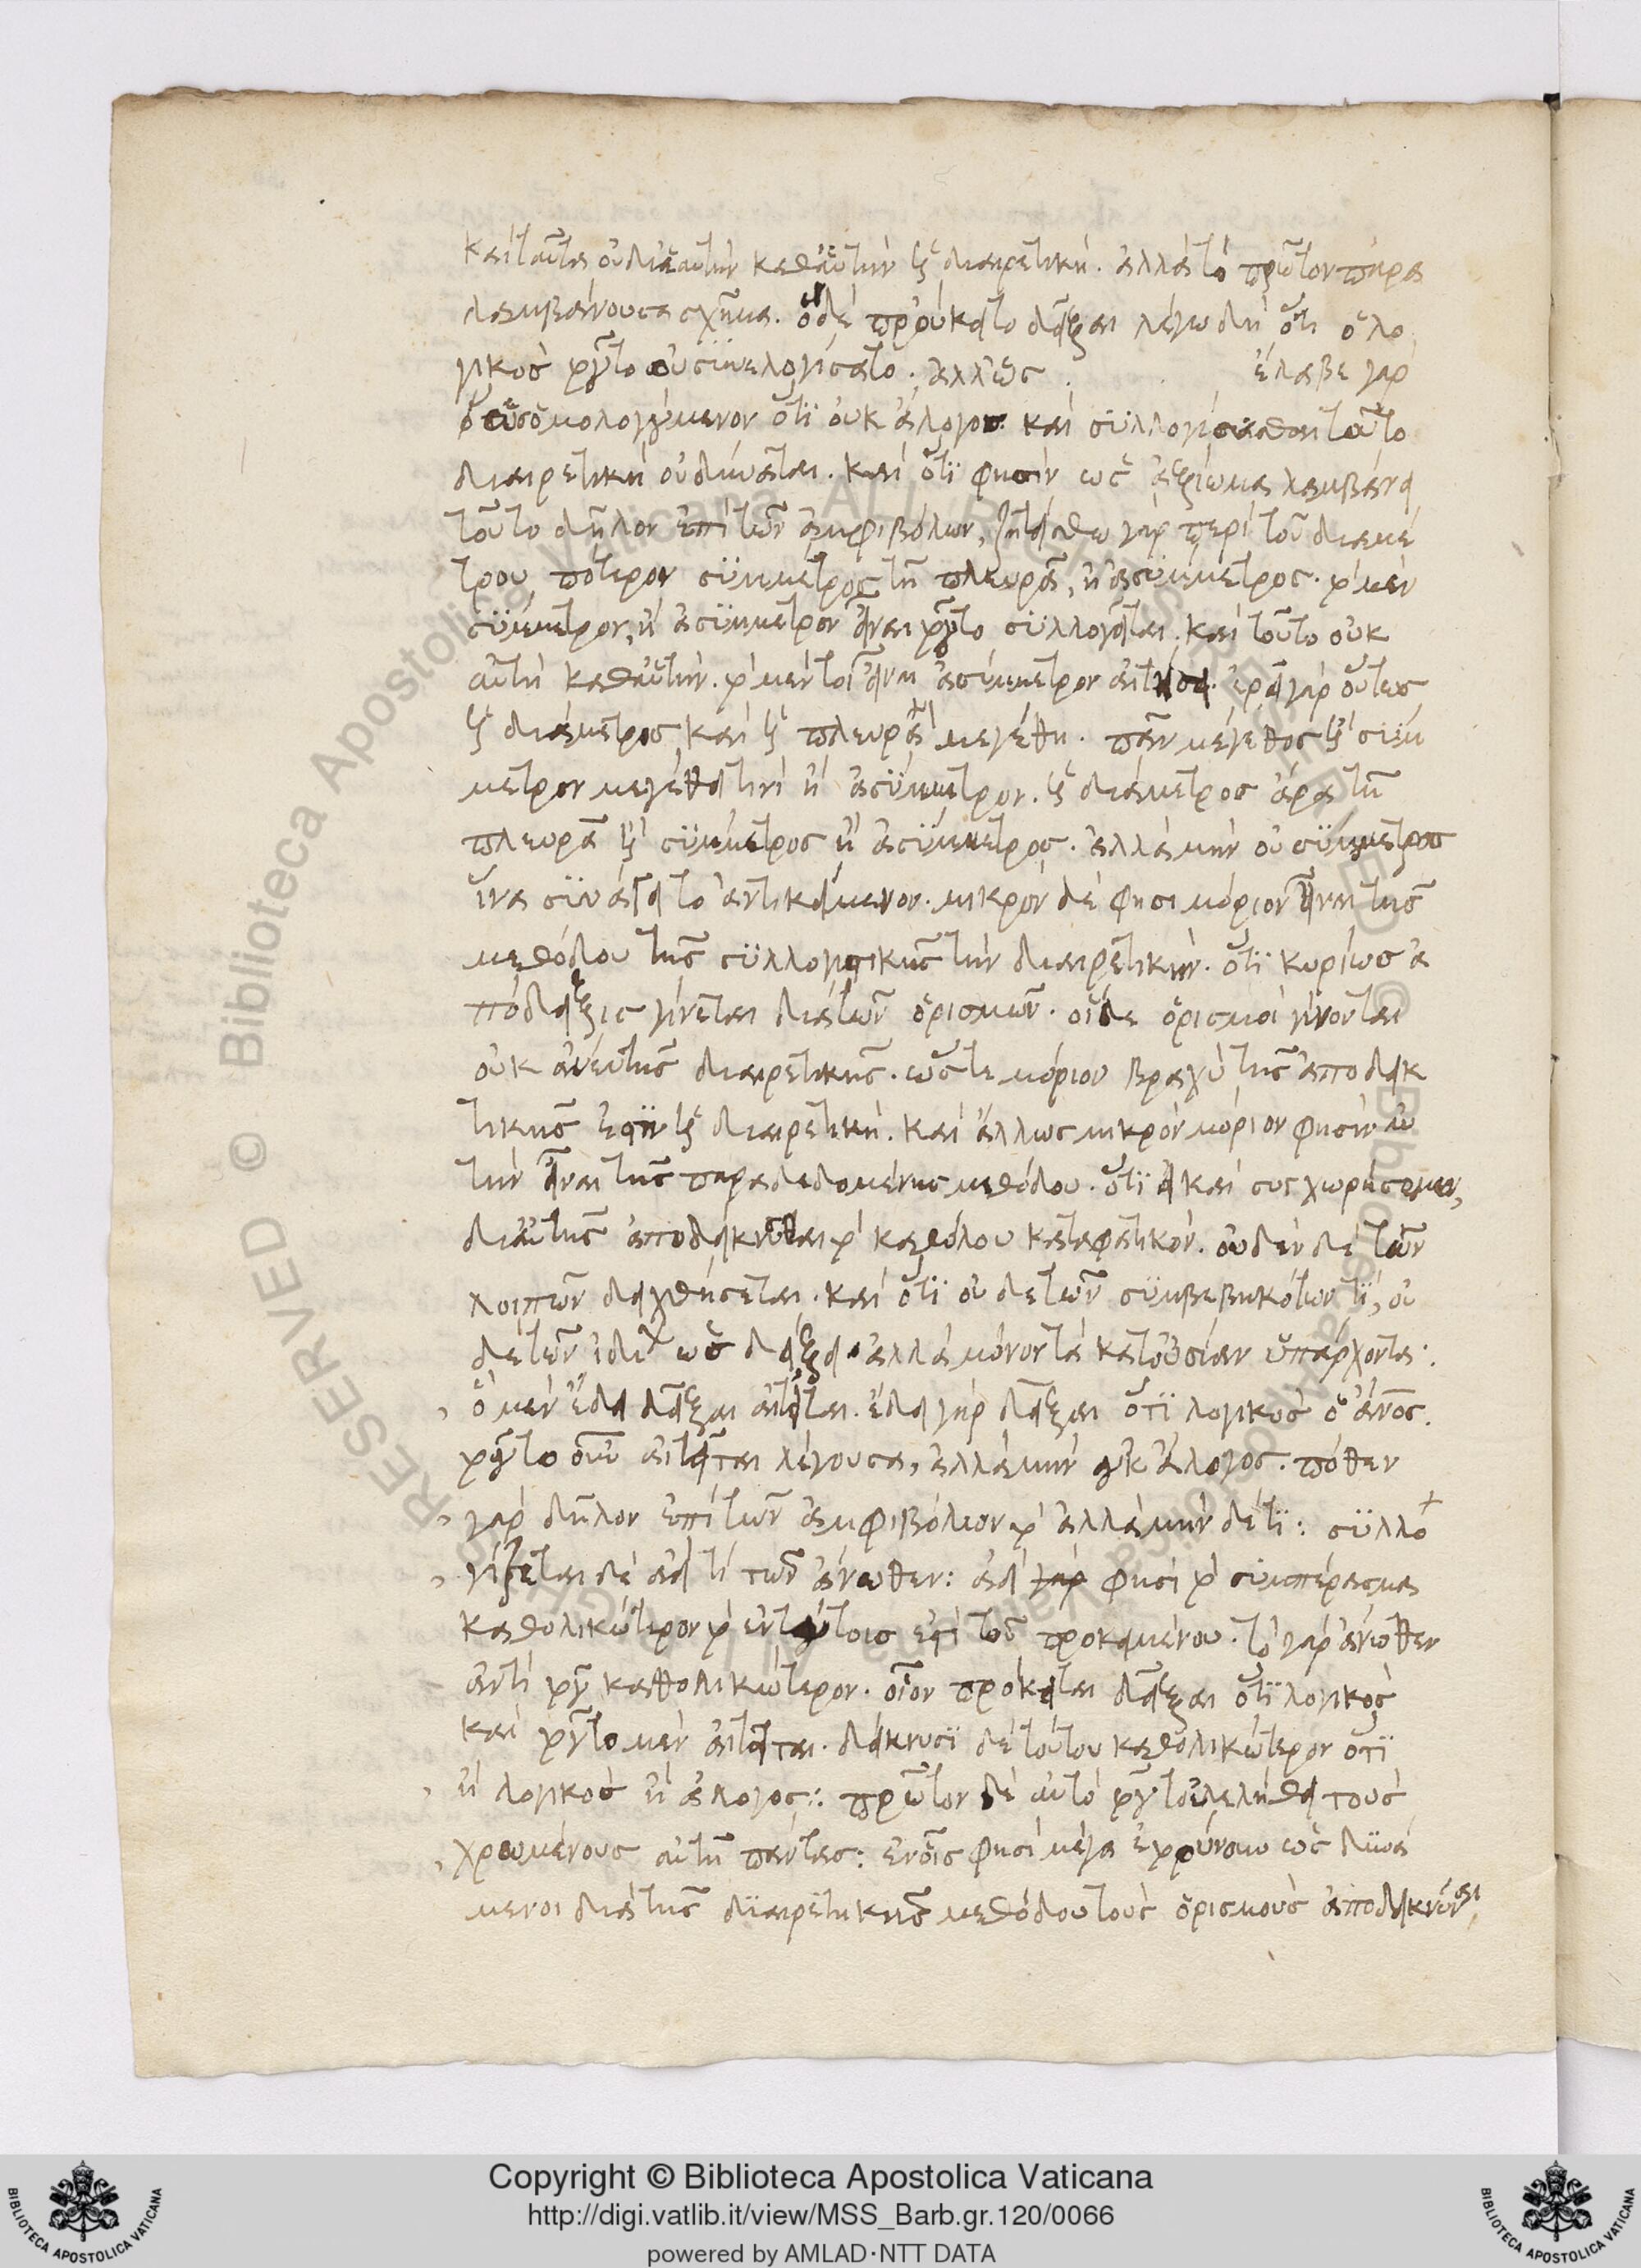 καὶ ταῦτα οὐ δι' ἑαυτὴν καθ' αὑτὴν ἡ διαιρετική. ἀλλὰ τὸ πρῶτον παρα
λαμβάνουσα σχῆμα. ὃ δὲ προύκειτο δεῖξαι λέγω δὴ ὅτι ὁ λο
γικὸς τοῦτο οὐ συνελογίσατο. ἄλλως. ἔλαβε γὰρ
ὡς ὁμολογούμενον ὅτι οὐκ ἄλογος. καὶ συλλογίσασθαι τοῦτο
διαιρετικὴ οὐ δύναται. καὶ ὅτι φησὶν ὡς ἀξίωμα λαμβάνει
τοῦτο δῆλον ἐπὶ τῶν ἀμφιβόλων, ζητείσθω γὰρ περὶ τοῦ διαμέ
τρου πότερον σύμμετρος τῇ πλευρᾷ, ἢ ἀσύμμετρος. τὸ μὲν
σύμμετρον, ἢ ἀσύμμετρον εἶναι τοῦτο συλλογεῖται. καὶ τοῦτο οὐκ
αὐτὴ καθ' αὑτήν. τὸ μέντοι εἶναι ἀσύμμετρον αἰτήσει. ἐρεῖ γὰρ οὕτως
ἡ διάμετρος καὶ ἡ πλευρὰ μεγέθη. πᾶν μέγεθος ἢ σύμ
μετρον μεγέθει τινὶ ἢ ἀσύμμετρον. ἡ διάμετρος ἄρα τῇ
πλευρᾷ ἢ σύμμετρος ἢ ἀσύμμετρος. ἀλλὰ μὴν οὐ σύμμετρος
ἵνα συνάξει τὸ ἀντικείμενον. μικρὸν δέ φησι μόριον εἶναι τῆς
μεθόδου τῆς συλλογιστικῆς τὴν διαιρετικήν. ὅτι κυρίως ἀ
πόδειξις γίνεται διὰ τῶν ὁρισμῶν. οἱ δὲ ὁρισμοὶ γίνονται
οὐκ ἄνευ τῆς διαιρετικῆς. ὥστε μόριον βραχὺ τῆς ἀποδεικ
τικῆς ἐστιν ἡ διαιρετική. καὶ ἄλλως μικρὸν μόριον φησὶν αὐ
τὴν εἶναι τῆς παραδεδομένης μεθόδου. ὅτι εἰ καὶ συγχωρήσομεν,
δι' αὐτῆς ἀποδείκνυται τὸ καθόλου καταφατικόν. οὐδὲν δὲ τῶν
λοιπῶν δειχθήσεται. καὶ ὅτι οὐδὲ τῶν συμβεβηκότων τί, οὐ
δὲ τῶν ἰδίων ὡς δείξει. ἀλλὰ μόνον τὰ κατ' οὐσίαν ὑπάρχοντα:
ὃ μὲν ἔδει δεῖξαι αἰτεῖται. ἔδει γὰρ δεῖξαι ὅτι λογικὸς ὁ ἄνος.
τοῦτο οὖν αἰτεῖται λέγουσα, ἀλλὰ μὴν οὐκ ἄλογος. πόθεν
γὰρ δῆλον ἐπὶ τῶν ἀμφιβόλων τὸ ἀλλὰ μὴν δέ τι: συλλο
γίζεται δὲ ἀεί τι τῶν ἄνωθεν: ἀεὶ γάρ φησι τὸ συμπέρασμα
καθολικώτερον τὸ ἐν τούτοις ἐστὶ τοῦ προκειμένου. τὸ γὰρ ἄνωθεν
ἀντὶ τοῦ καθολικώτερον. οἷον πρόκειται δεῖξαι ὅτι λογικὸς
καὶ τοῦτο μὲν αἰτεῖται. δείκνυσι δὲ τούτου καθολικώτερον ὅτι
ἢ λογικὸς ἢ ἄλογος: πρῶτον δὲ αὐτὸ τοῦτο ἐλελήθει τοὺς
χρωμένους αὐτῇ πάντας: ἐν οἷς φησὶ μέγα ἐφρόνουν ὡς δυνά
μενοι διὰ τῆς διαιρετικῆς μεθόδου τοὺς ὁρισμοὺς ἀποδεικνῦναι
Copyright © Biblioteca Apostolica Vaticana
http://digi.vatlib.it/view/MSS_Barb.gr.120/0066
powered by AMLAD·NTT DATA